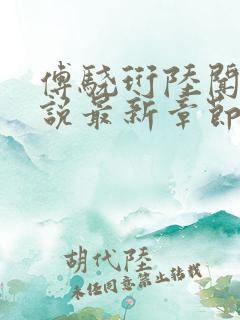 傅駿珩陸聞
說最新章節
胡代陸
未經同意禁止轉載